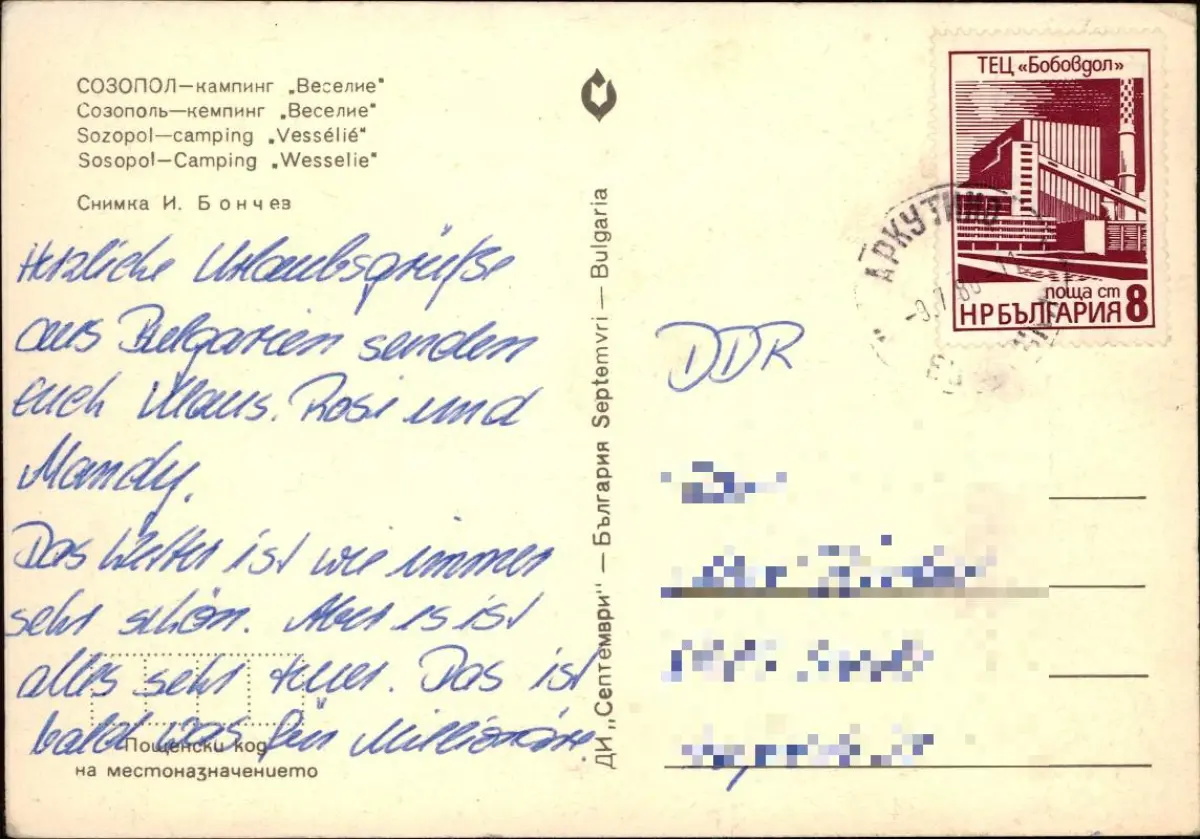 СОЗОПОЛ—кампинг „Веселие"
Созополь—кемпинг „Веселие"
Sozopol—camping „Vessélié"
Sosopol—Camping „Wesselie"
Снимка И. Бончев
Herzliche Urlaubsgrüße
aus Bulgarien senden
Euch Klaus. Rosi und
Mandy.
Das Wetter ist wie immer
sehr schön. Aber es ist
alles sehr teuer. Das ist
bald was für Millionäre.
Пощенски код
на местоназначението
ДИ „Септември" — България Septemvri — Bulgaria
ТЕЦ «Бобовдол»
поща ст 8
НРБЪЛГАРИЯ
АРКУТИНО
DDR